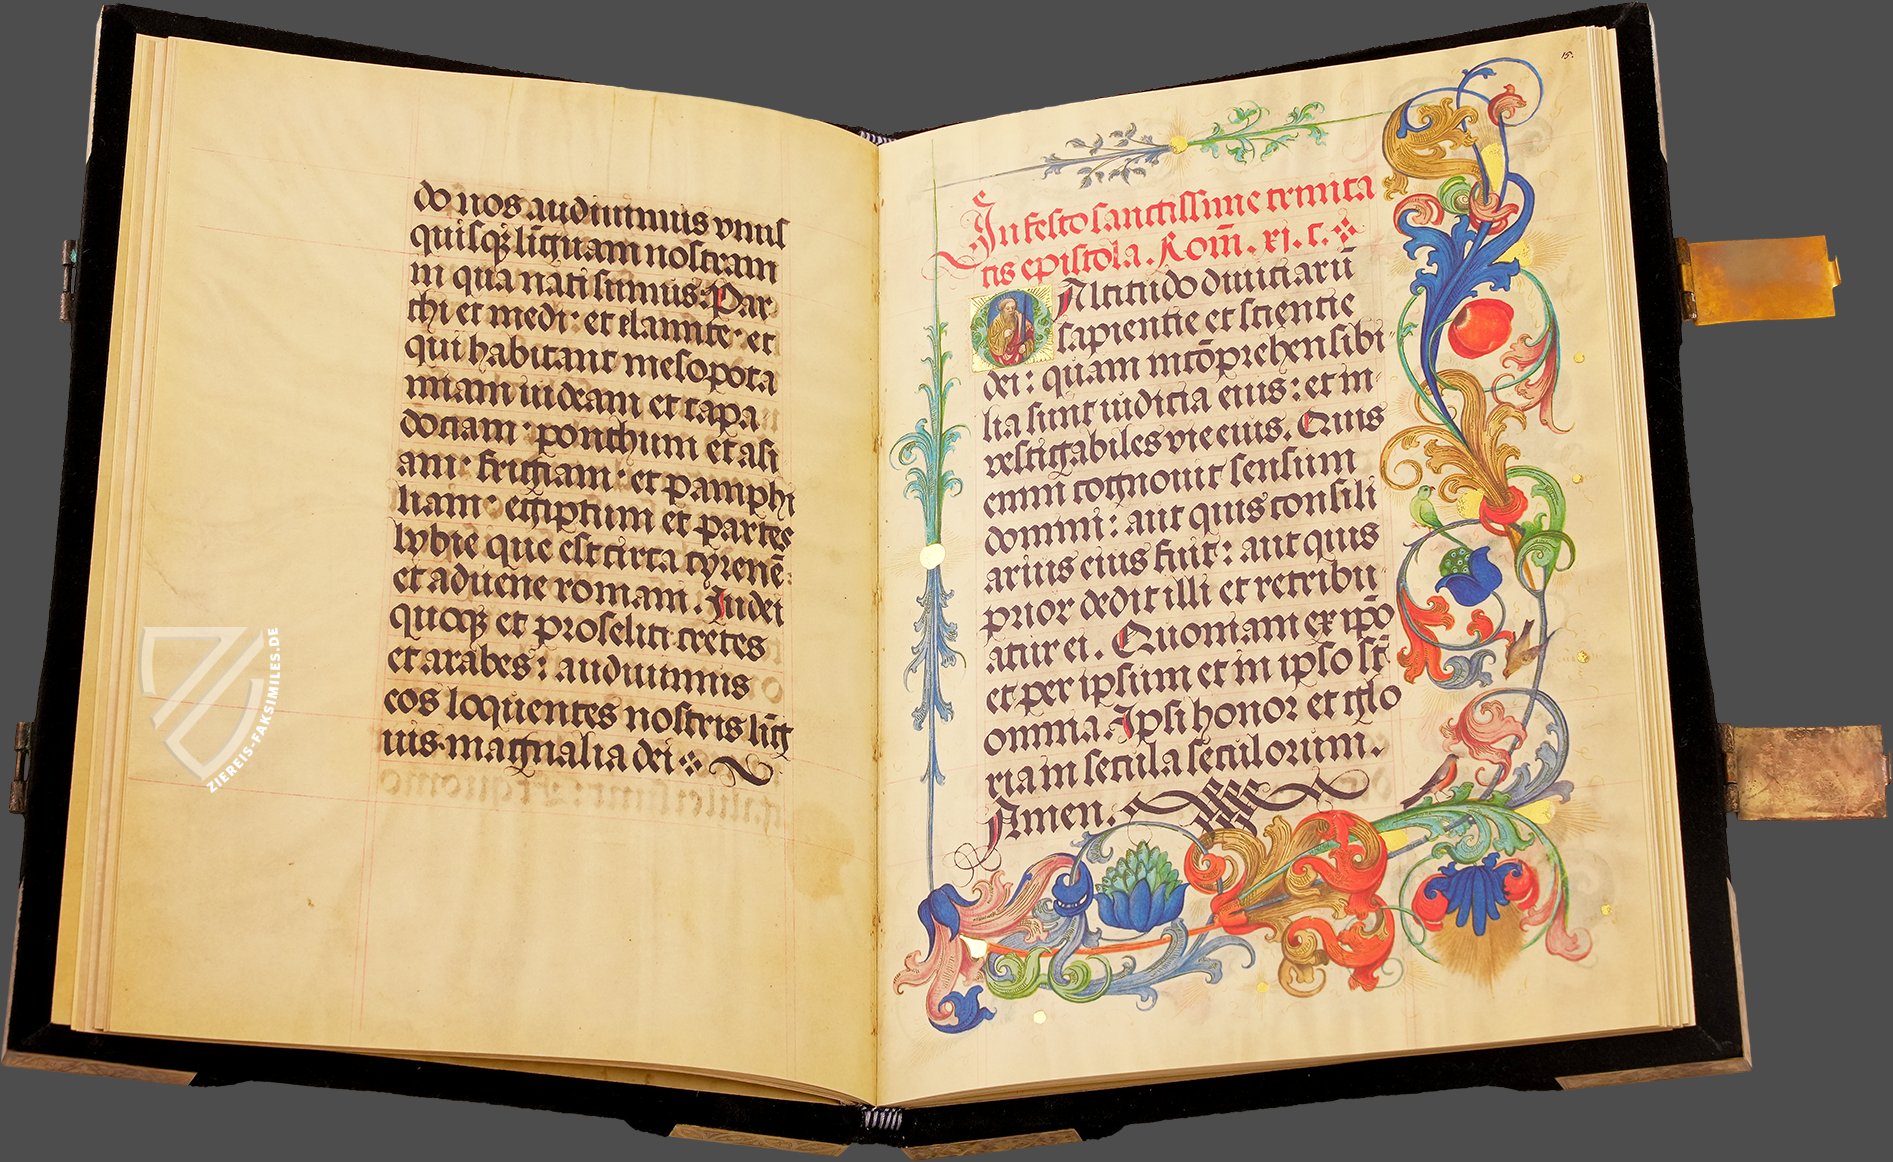 do nos audiuimus vnus
quisq; līguam nostram
in qua nati sumus: Par
thi et medi: et elamite: et
qui habitant mesopota
miam iudeam et capa
dociam: ponthum et asi
am: frigiam: et pamphi
liam: egiptum et partes
lybie que est circa cyrenē:
et aduene romani. Iudei
quoq; et proseliti cretes
et arabes: audiuimus
eos loquentes nostris līg
uis magnalia dei
15.
In festo sanctissime trinita
tis epistola. Rom̄. xi. c.
O Altitudo diuiciarū
sapientie et scientie
dei: quam incōprehensibi
lia sunt iudicia eius: et in
vestigabiles vie eius. Quis
enim cognouit sensum
domini: aut quis consili
arius eius fuit: aut quis
prior dedit illi et retribu
atur ei. Quoniam ex ip̄o
et per ipsum et in ipso st̄
omnia. Ipsi honor et glo
riam secula seculorum.
Amen.
ZIEREIS-FAKSIMILES.DE